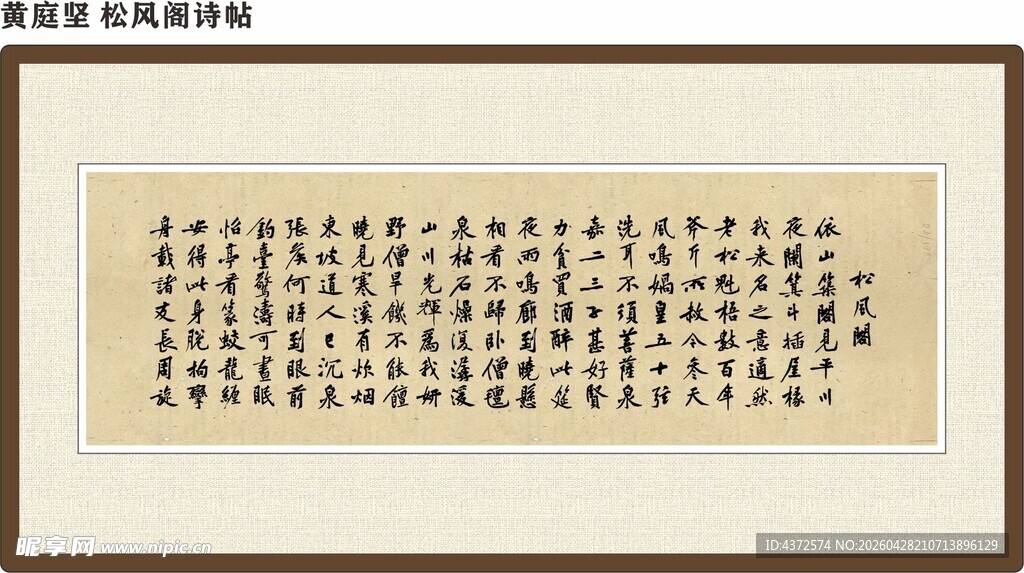 黄庭坚 松风阁诗帖
松風閣
依山築閣見平川
夜闌箕斗插屋椽
我来名之意適然
老松魁梧數百年
斧斤所赦令参天
風鳴媧皇五十弦
洗耳不須菩薩泉
嘉二三子甚好賢
力貪買酒醉此筵
夜雨鳴廊到曉懸
相看不歸卧僧氊
泉枯石燥復潺湲
山川光輝爲我妍
野僧旱饑不能饘
曉見寒溪有炊烟
東坡道人已沉泉
張矦何時到眼前
釣臺驚濤可晝眠
怡亭看篆蛟龍纏
安得此身脫拘攣
身載諸友長周旋
昵享网 www.nipic.cn
ID:4372574 NO:20260428210713896129